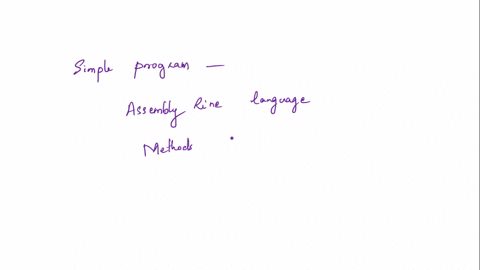 Simple program —
Assembly line language
Methods